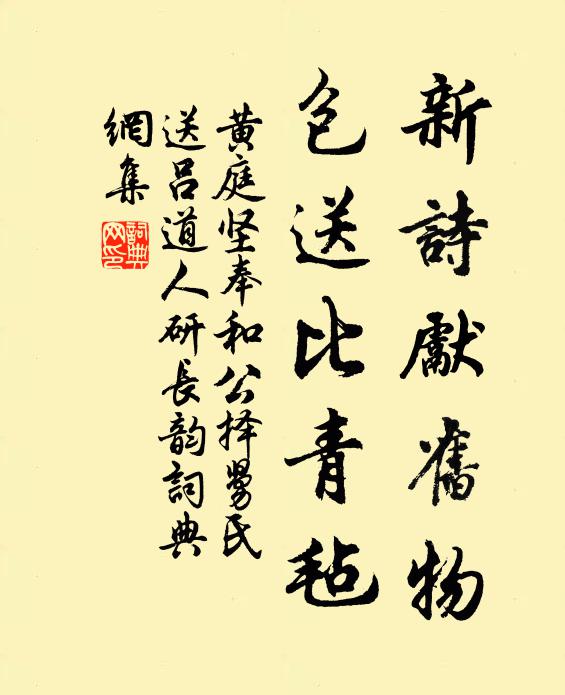 新詩獻舊物
包送比青毡
黄庭坚奉和公择舅氏
送呂道人研長韵詞典
網集
詞典
网印